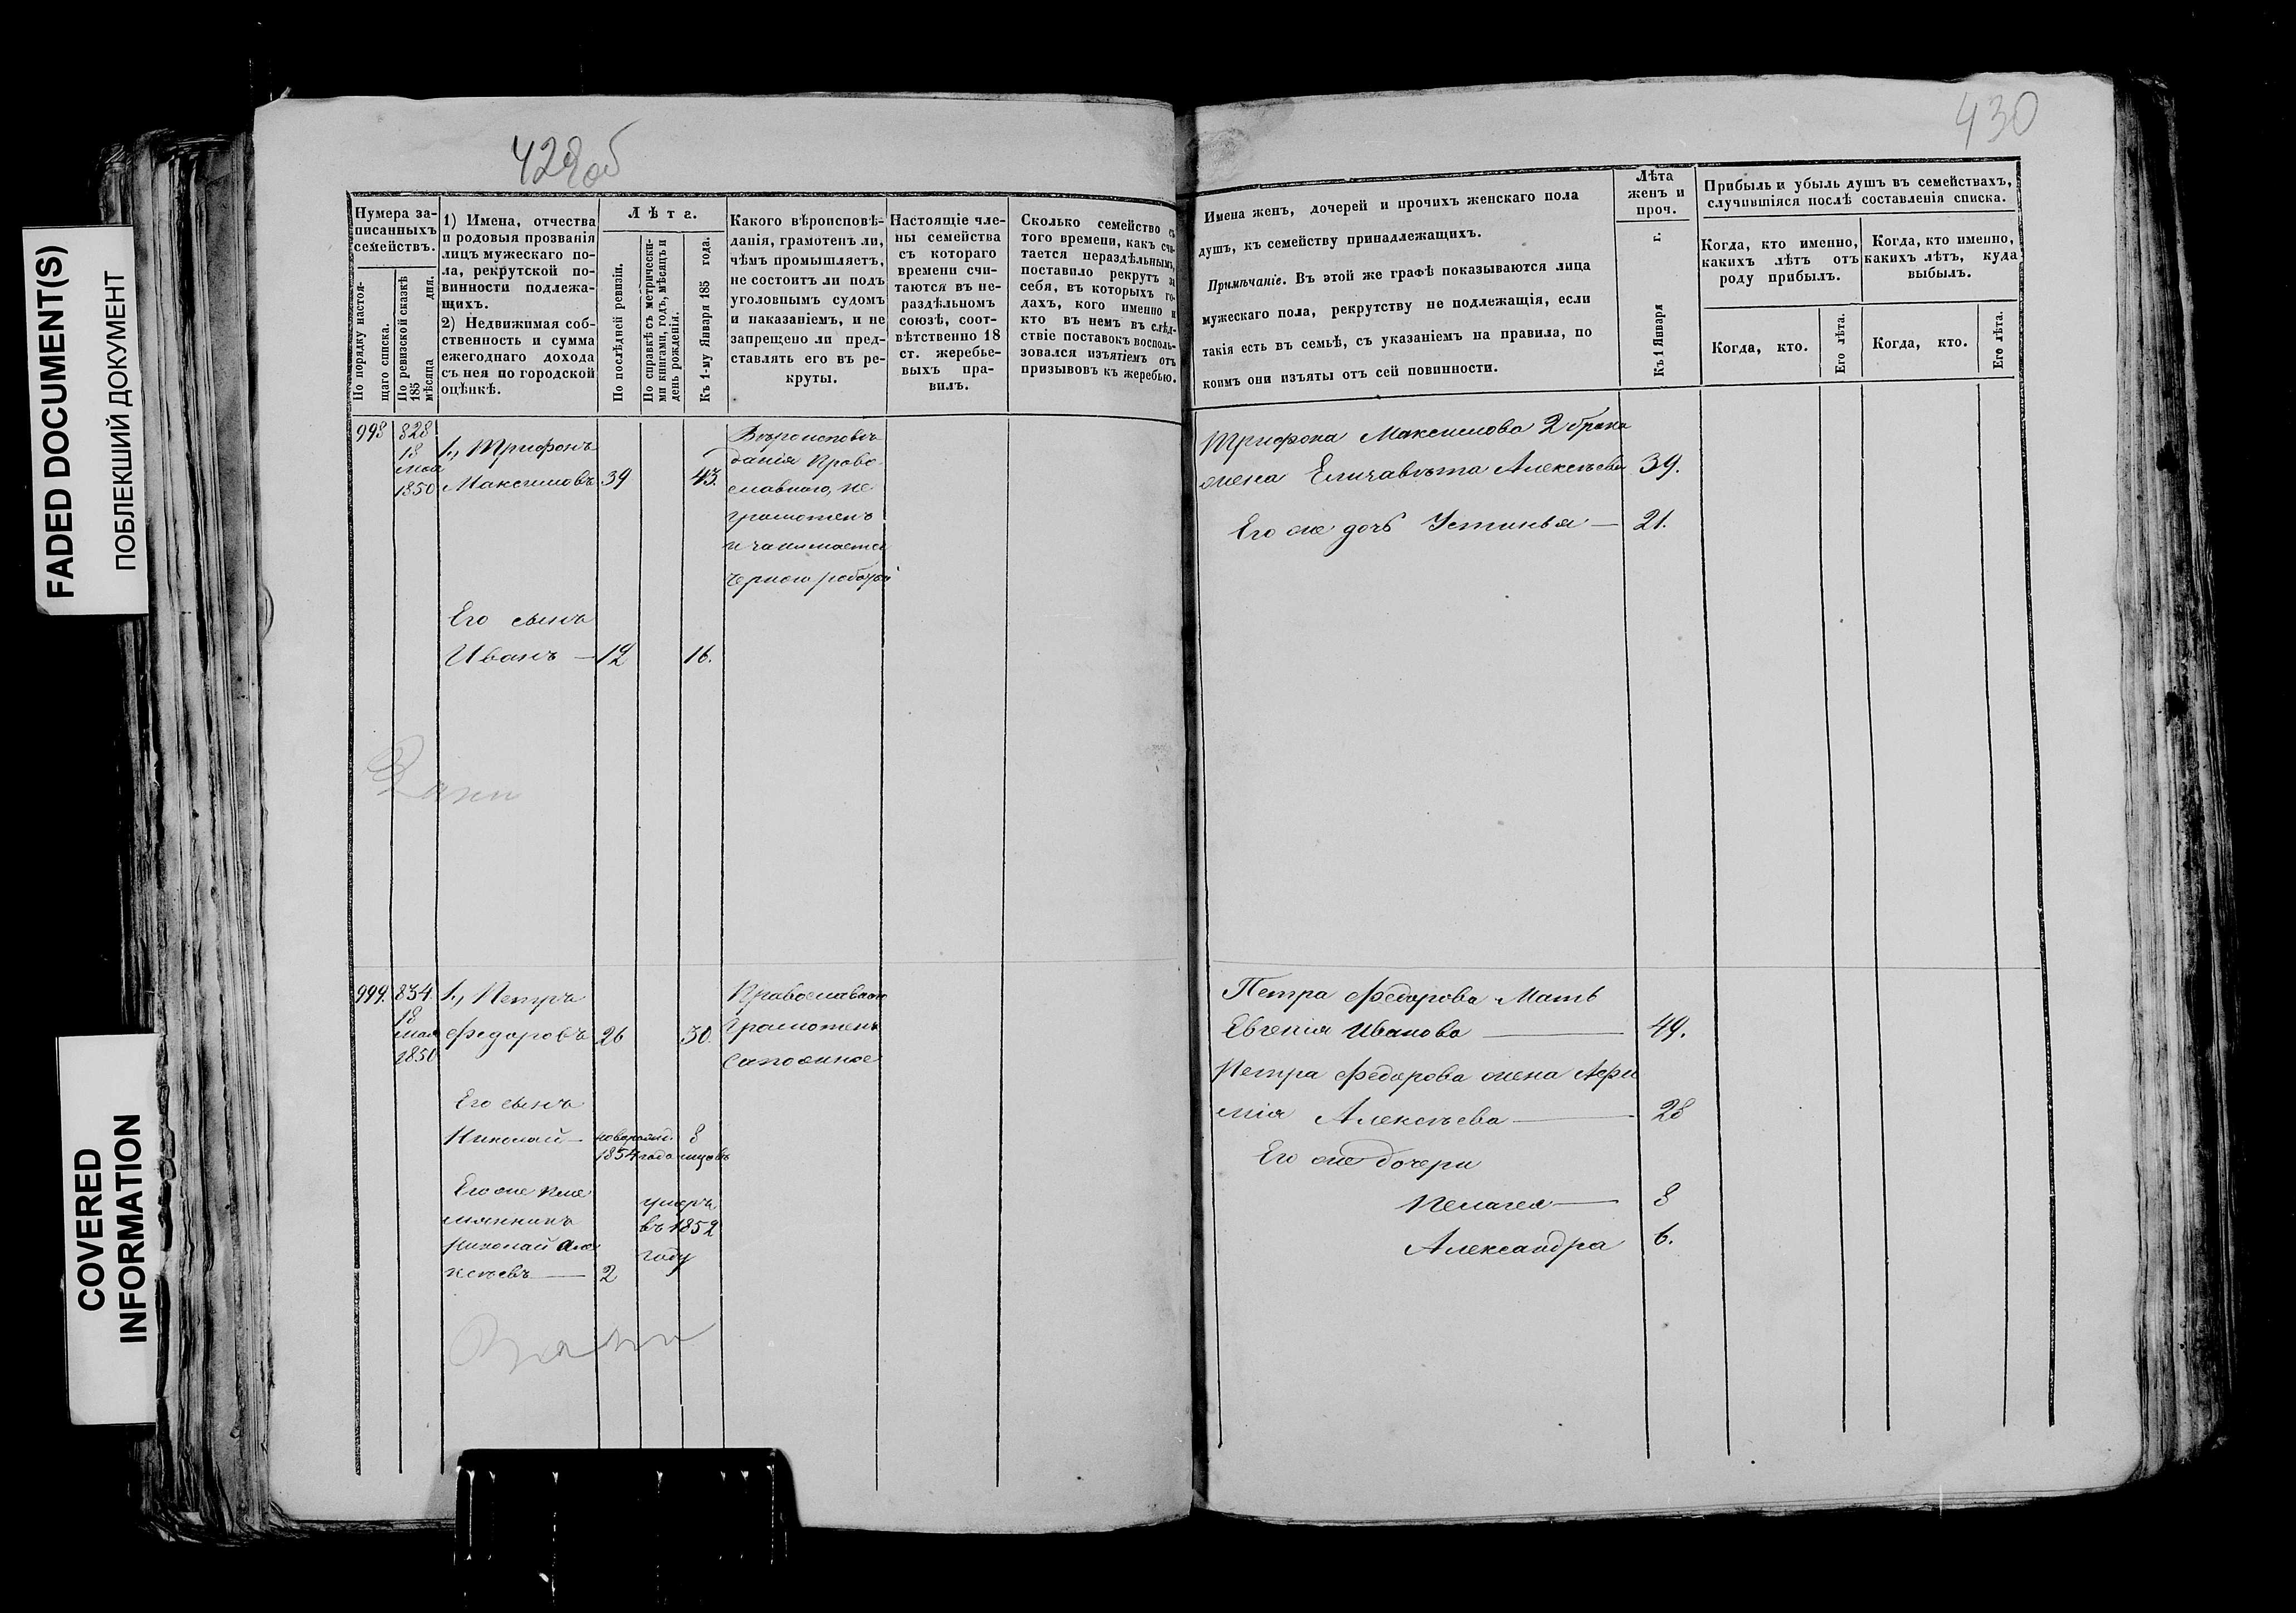 FADED DOCUMENT(S)
ПОБЛЕКШИЙ ДОКУМЕНТ
COVERED
INFORMATION
429об
Нумера за-
писанныхъ
семействъ.
По порядку настоя-
щаго списка.
По ревизской сказкѣ
185 дня.
мѣсяца
1) Имена, отчества
и родовыя прозванія
лицъ мужескаго по-
ла, рекрутской по-
винности подлежа-
щихъ.
2) Недвижимая соб-
ственность и сумма
ежегоднаго дохода
съ нея по городской
оцѣнкѣ.
Лѣта.
По послѣдней ревизіи.
По справкѣ съ метрически-
ми книгами, годъ, мѣсяцъ и
день рожденія.
Къ 1-му Января 185 года.
Какого вѣроисповѣ-
данія, грамотенъ ли,
чѣмъ промышляетъ,
не состоитъ ли подъ
уголовнымъ судомъ
и наказаніемъ, и не
запрещено ли пред-
ставлять его въ ре-
круты.
Настоящіе чле-
ны семейства
съ котораго
времени счи-
таются въ не-
раздѣльномъ
союзѣ, соот-
вѣтственно 18
ст. жеребье-
выхъ пра-
вилъ.
Сколько семейство съ
того времени, какъ счи-
тается нераздѣльнымъ,
поставило рекрутъ за
себя, въ которыхъ го-
дахъ, кого именно и
кто въ немъ въ слѣд-
ствіе поставокъ восполь-
зовался изъятіемъ отъ
призывовъ къ жеребью.
998 828
18
мая
1850
1., Трифонъ
Максимовъ 39 43.
Вѣроисповѣ
данія Право
славного, не
грамотенъ
и занимается
черною работой
Его сынъ
Иванъ — 12 16.
999. 834.
18
мая
1850
1., Петръ
Федоровъ 26 30.
Православного
Грамотенъ
Сапожное
Его сынъ
Николай — новорожд. 8
1854 года месяцовъ
Его же пле
мянникъ
Николай Але
ксѣевъ — 2
умеръ
въ 1852
году
430
Имена женъ, дочерей и прочихъ женскаго пола
душъ, къ семейству принадлежащихъ.
Примѣчаніе. Въ этой же графѣ показываются лица
мужескаго пола, рекрутству не подлежащія, если
такія есть въ семьѣ, съ указаніемъ на правила, по
коимъ они изъяты отъ сей повинности.
Лѣта
женъ и
проч.
Къ 1 Января г.
Прибыль и убыль душъ въ семействахъ,
случившіяся послѣ составленія списка.
Когда, кто именно,
какихъ лѣтъ отъ
роду прибылъ.
Когда, кто именно,
какихъ лѣтъ, куда
выбылъ.
Когда, кто.
Его лѣта.
Когда, кто.
Его лѣта.
Трифона Максимова 2 брака
жена Елизавѣта Алексѣева 39.
Его же дочь Устинья — 21.
Петра Федорова Мать
Евгенія Иванова — 49.
Петра Федорова жена Афи
мія Алексѣева — 28
Его же дочери
Пелагея — 8
Александра 6.